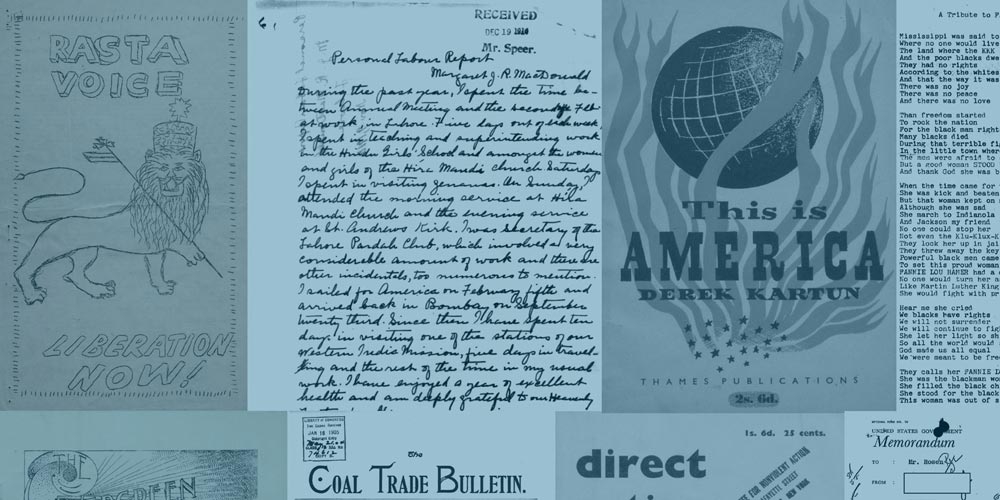 RASTA
VOICE
LIBERATION
NOW!
RECEIVED
DEC 19 1916
Mr. Speer.
Personal Labour Report
Margaret J. R. MacDonald
During the past year, I spent the time be-
tween Annual Meeting and the second of Feb
at work, in Lahore. Five days out of each week
I spent in teaching and superintending work
in the Hindu Girls' School and amongst the women
and girls of the Hira Mandi church. Saturday
I spent in visiting zenanas. On Sunday, I
attended the morning service at Hira
Mandi Church and the evening service
at St. Andrews Kirk. I was secretary of the
Lahore Pardah Club, which involved a very
considerable amount of work and there are
other incidentals, too numerous to mention.
I sailed for America on February fifth and
arrived back in Bombay on September
twenty third. Since then I have spent ten
days in visiting one of the stations of our
Western India Mission, five days in travel-
ling and the rest of the time in my usual
work. I have enjoyed a year of excellent
health and am deeply grateful to our Heavenly
This is
AMERICA
DEREK KARTUN
THAMES PUBLICATIONS
2s. 6d.
A Tribute to F
Mississippi was said to
Where no one would live
The land where the KKK
And the poor blacks dwe
They had no rights
According to the whites
And that the way it was
There was no joy
There was no peace
And there was no love
Than freedom started
To rock the nation
For the black man right
Many blacks died
During that terrible fi
In the little town wher
The men were afraid to
But a good woman STOOD
And thank God she was b
When the time came for
She was kick and beaten
But that woman kept on
Although she was sad
She march to Indianola
And Jackson my friend
No one could stop her
Not even the Klu-Klux-K
They lock her up in jai
They threw away the key
Powerful black men came
To set this proud woman
FANNIE LOU HAMER had a
No one would turn her
Like Martin Luther King
She would fight with pr
Hear me she cried
We blacks have rights
We will not surrender
We will continue to fig
She let her light so sh
So all the world would
God made us all equal
We were meant to be fre
They calls her FANNIE L
She was the blackman wo
She filled the black ch
She stood for the black
This woman was out of s
THE
EVERGREEN
JAN 16 1905
The
COAL TRADE BULLETIN.
1s. 6d. 25 cents.
direct
FOR NONVIOLENT ACTION
LAFAYETTE STREET
NEW YORK
UNITED STATES GOV MENT
Memorandum
TO : Mr. Rosen
FROM :